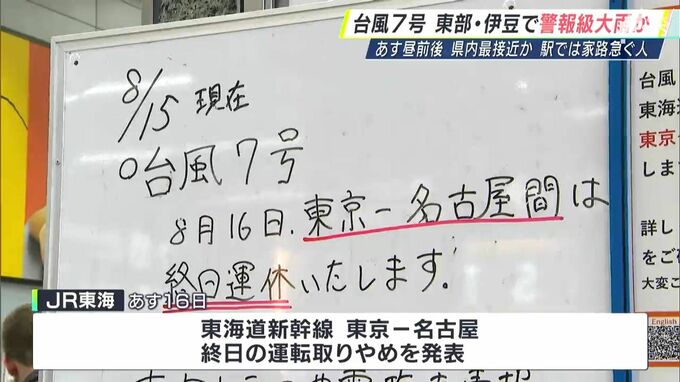 台風7号 東部・伊豆で警報級大雨か
あす昼前後 県内最接近か 駅では家路急ぐ人
8/15 現在
○台風7号
8月16日、東京-名古屋間は
終日運休いたします。
台風
東海道
東京-
します
詳し
をご確
大変ご
English
JR東海 あす16日
東海道新幹線 東京-名古屋
終日の運転取りやめを発表